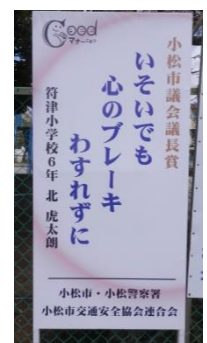 Good
マナー
小松市議会議長賞
いそいでも
心のブレーキ
わすれずに
符津小学校6年 北 虎太朗
小松市・小松警察署
小松市交通安全協会連合会